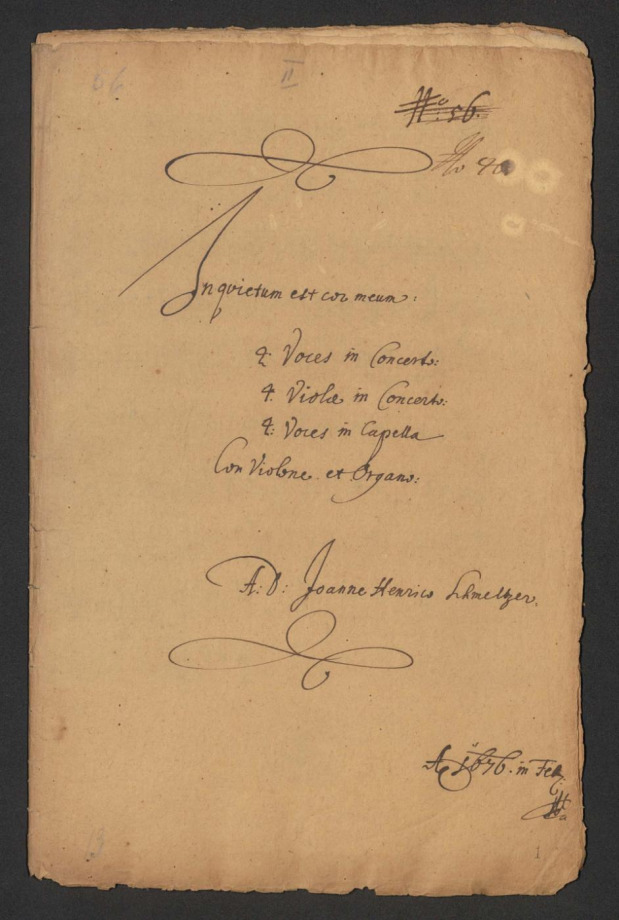 66
II
No: 56.
No 40
Inqvietum est cor meum:
4. Voces in Concerto:
4. Violæ in Concerto:
4: Voces in Capella
Con Violone et Organo:
A: D: Joanne Henrico Schmeltzer.
Ao 1676. in Feb
1